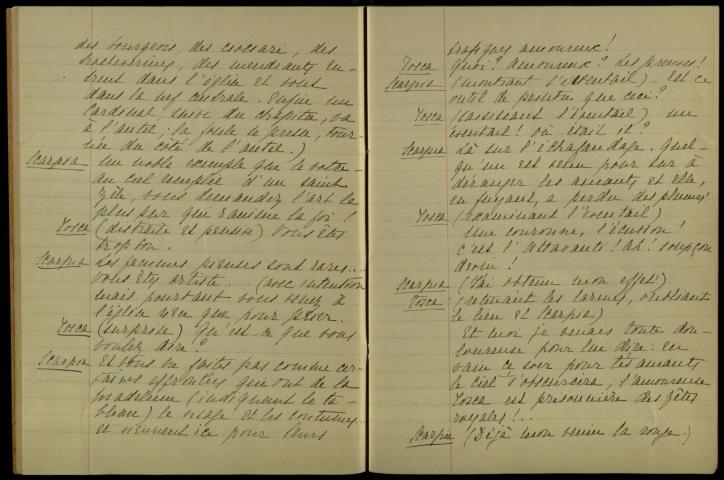 des bourgeois, des ciociari, des
trasteverins, des mendiants en-
trent dans l'église et vont
dans la nef centrale. Enfin un
Cardinal, suivi du chapitre, va
à l'autel; la foule se presse, tour-
née du côté de l'autel.)
Scarpia Un noble exemple que le votre-
au ciel remplie d'un saint
zèle, vous demandez l'art le
plus pur qui ranime la foi!
Tosca (distraite et pensive) Vous êtes
trop bon.
Scarpia Les personnes pieuses sont rares...
Vous êtes artiste .... (avec intention
mais pourtant vous venez à
l'église rien que pour prier.
Tosca (surprise) Qu'est-ce que vous
voulez dire?
Scarpia Et vous ne faites pas comme cer-
taines effrontées qui ont de la
Madeleine (indiquant le ta-
bleau) le visage et les costumes..
et viennent ici pour leurs
trafiques amoureux!
Tosca Quoi? Amoureux? Les preuves!
Scarpia (montrant l'éventail) - Est ce
outil de peintre que ceci?
Tosca (saisissant l'éventail) un
éventail! où était il?
Scarpia Là sur l'échafaudage. Quel-
qu'un est venu pour sur à
déranger les amants et elle,
en fuyant, a perdu des plumes!
Tosca (examinant l'éventail)
Une couronne, l'écusson!
c'est l'Attavanti! Ah! soupçon
divin!
Scarpia (J'ai obtenu mon effet!)
Tosca (retenant les larmes, oubliant
le lieu et Scarpia)
Et moi je venais toute dou-
loureuse pour lui dire: en
vain ce soir pour tes amants
le ciel s'obscurcira, l'amoureuse
Tosca est prisonnière des fêtes
royales!...
Scarpia (Déjà mon venin la ronge.)